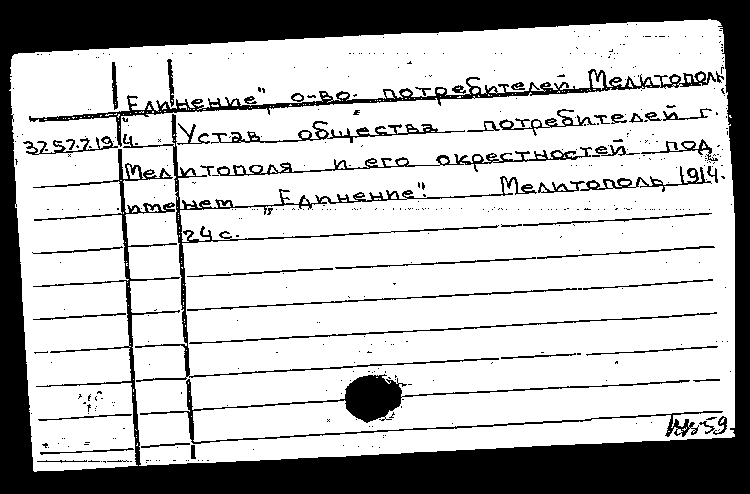 "Единение", о-во потребителей. Мелитополь
37.57.7.194. Устав общества потребителей г.
Мелитополя и его окрестностей под
именем „Единение". Мелитополь, 1914.
24 с.
59